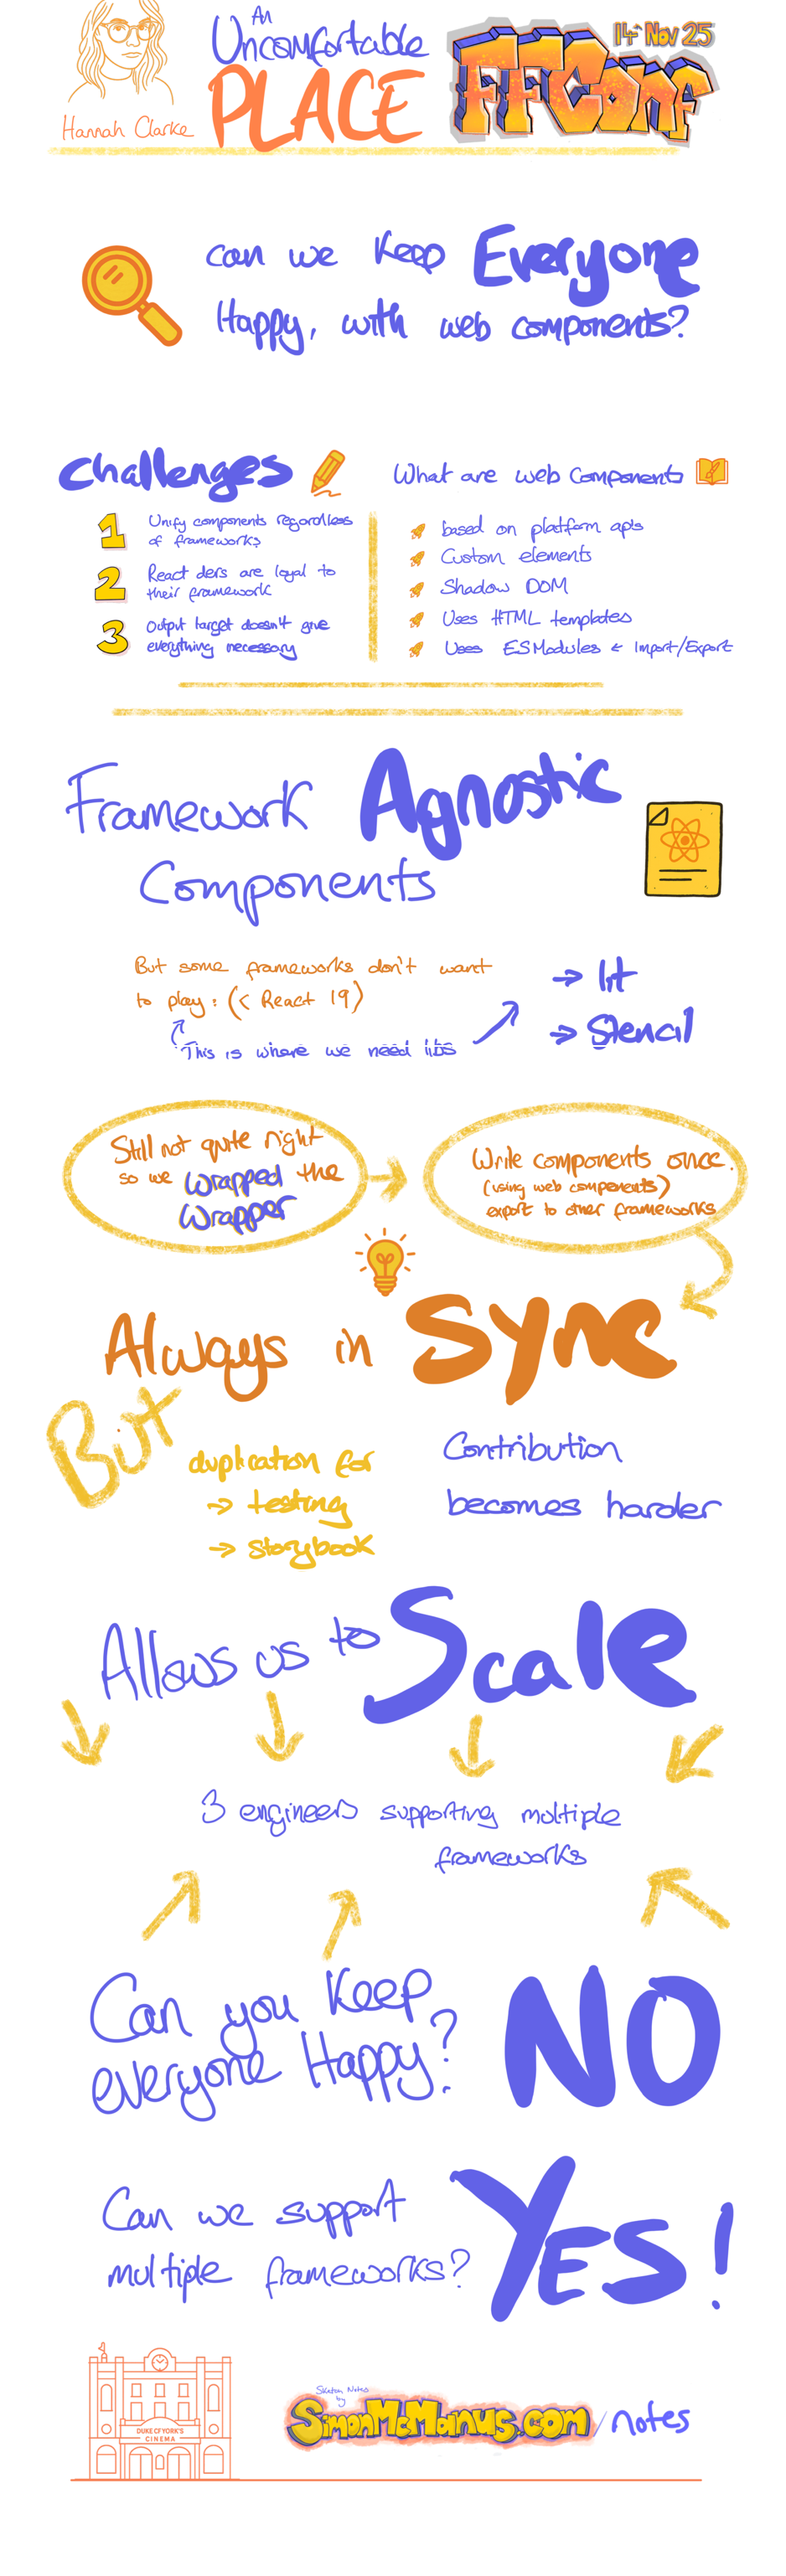 An
Uncomfortable
PLACE
Hannah Clarke
14 Nov 25
FFConf
Can we Keep Everyone
Happy, with web components?
Challenges
1 Unify components regardless
of frameworks
2 React devs are loyal to
their framework
3 Output target doesn't give
everything necessary
What are web Components
based on platform apis
Custom elements
Shadow DOM
Uses HTML templates
Uses ESModules ← Import/Export
Framework Agnostic
Components
But some frameworks don't want
to play: (< React 19)
This is where we need libs
→ lit
→ Stencil
Still not quite right
so we Wrapped the
Wrapper
Write components once.
(using web components)
export to other frameworks
Always in Sync
But
duplication for
→ testing
→ storybook
Contribution
becomes harder
Allows us to Scale
3 engineers supporting multiple
frameworks
Can you Keep
everyone Happy?
NO
Can we support
multiple frameworks?
YES!
DUKE OF YORK'S
CINEMA
Sketch Notes
by
SimonMcManus.com/notes